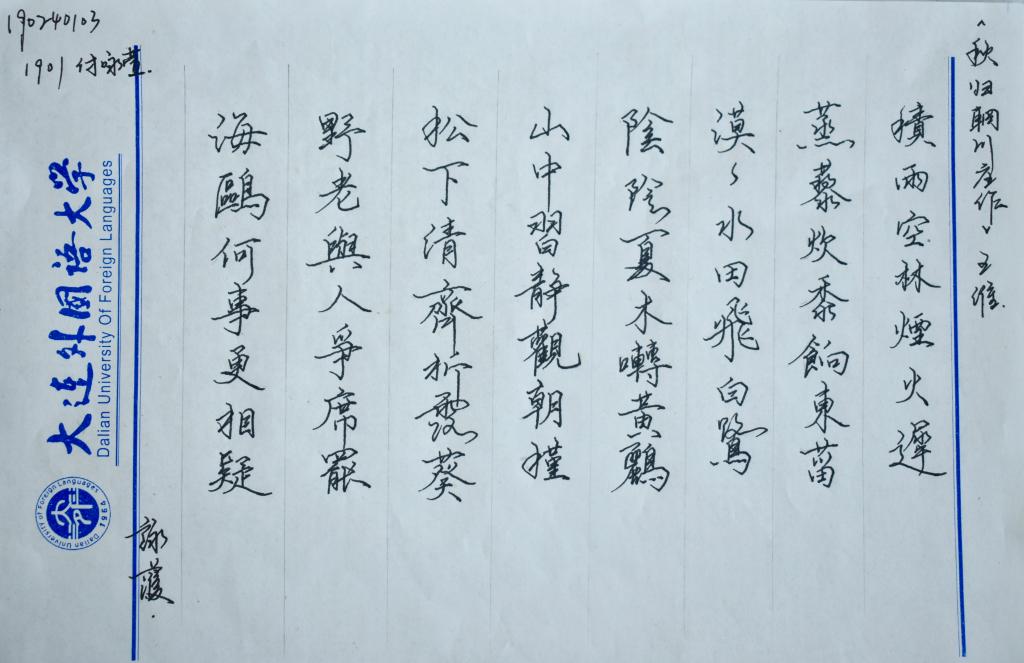 《秋归辋川庄作》王维
積雨空林煙火遲
蒸藜炊黍餉東菑
漠々水田飛白鷺
陰陰夏木囀黄鸝
山中習靜觀朝槿
松下清齋折露葵
野老與人爭席罷
海鷗何事更相疑
190240103
1901 付咏萱.
大连外国语大学
Dalian University Of Foreign Languages
Dalian University of Foreign Languages 1964